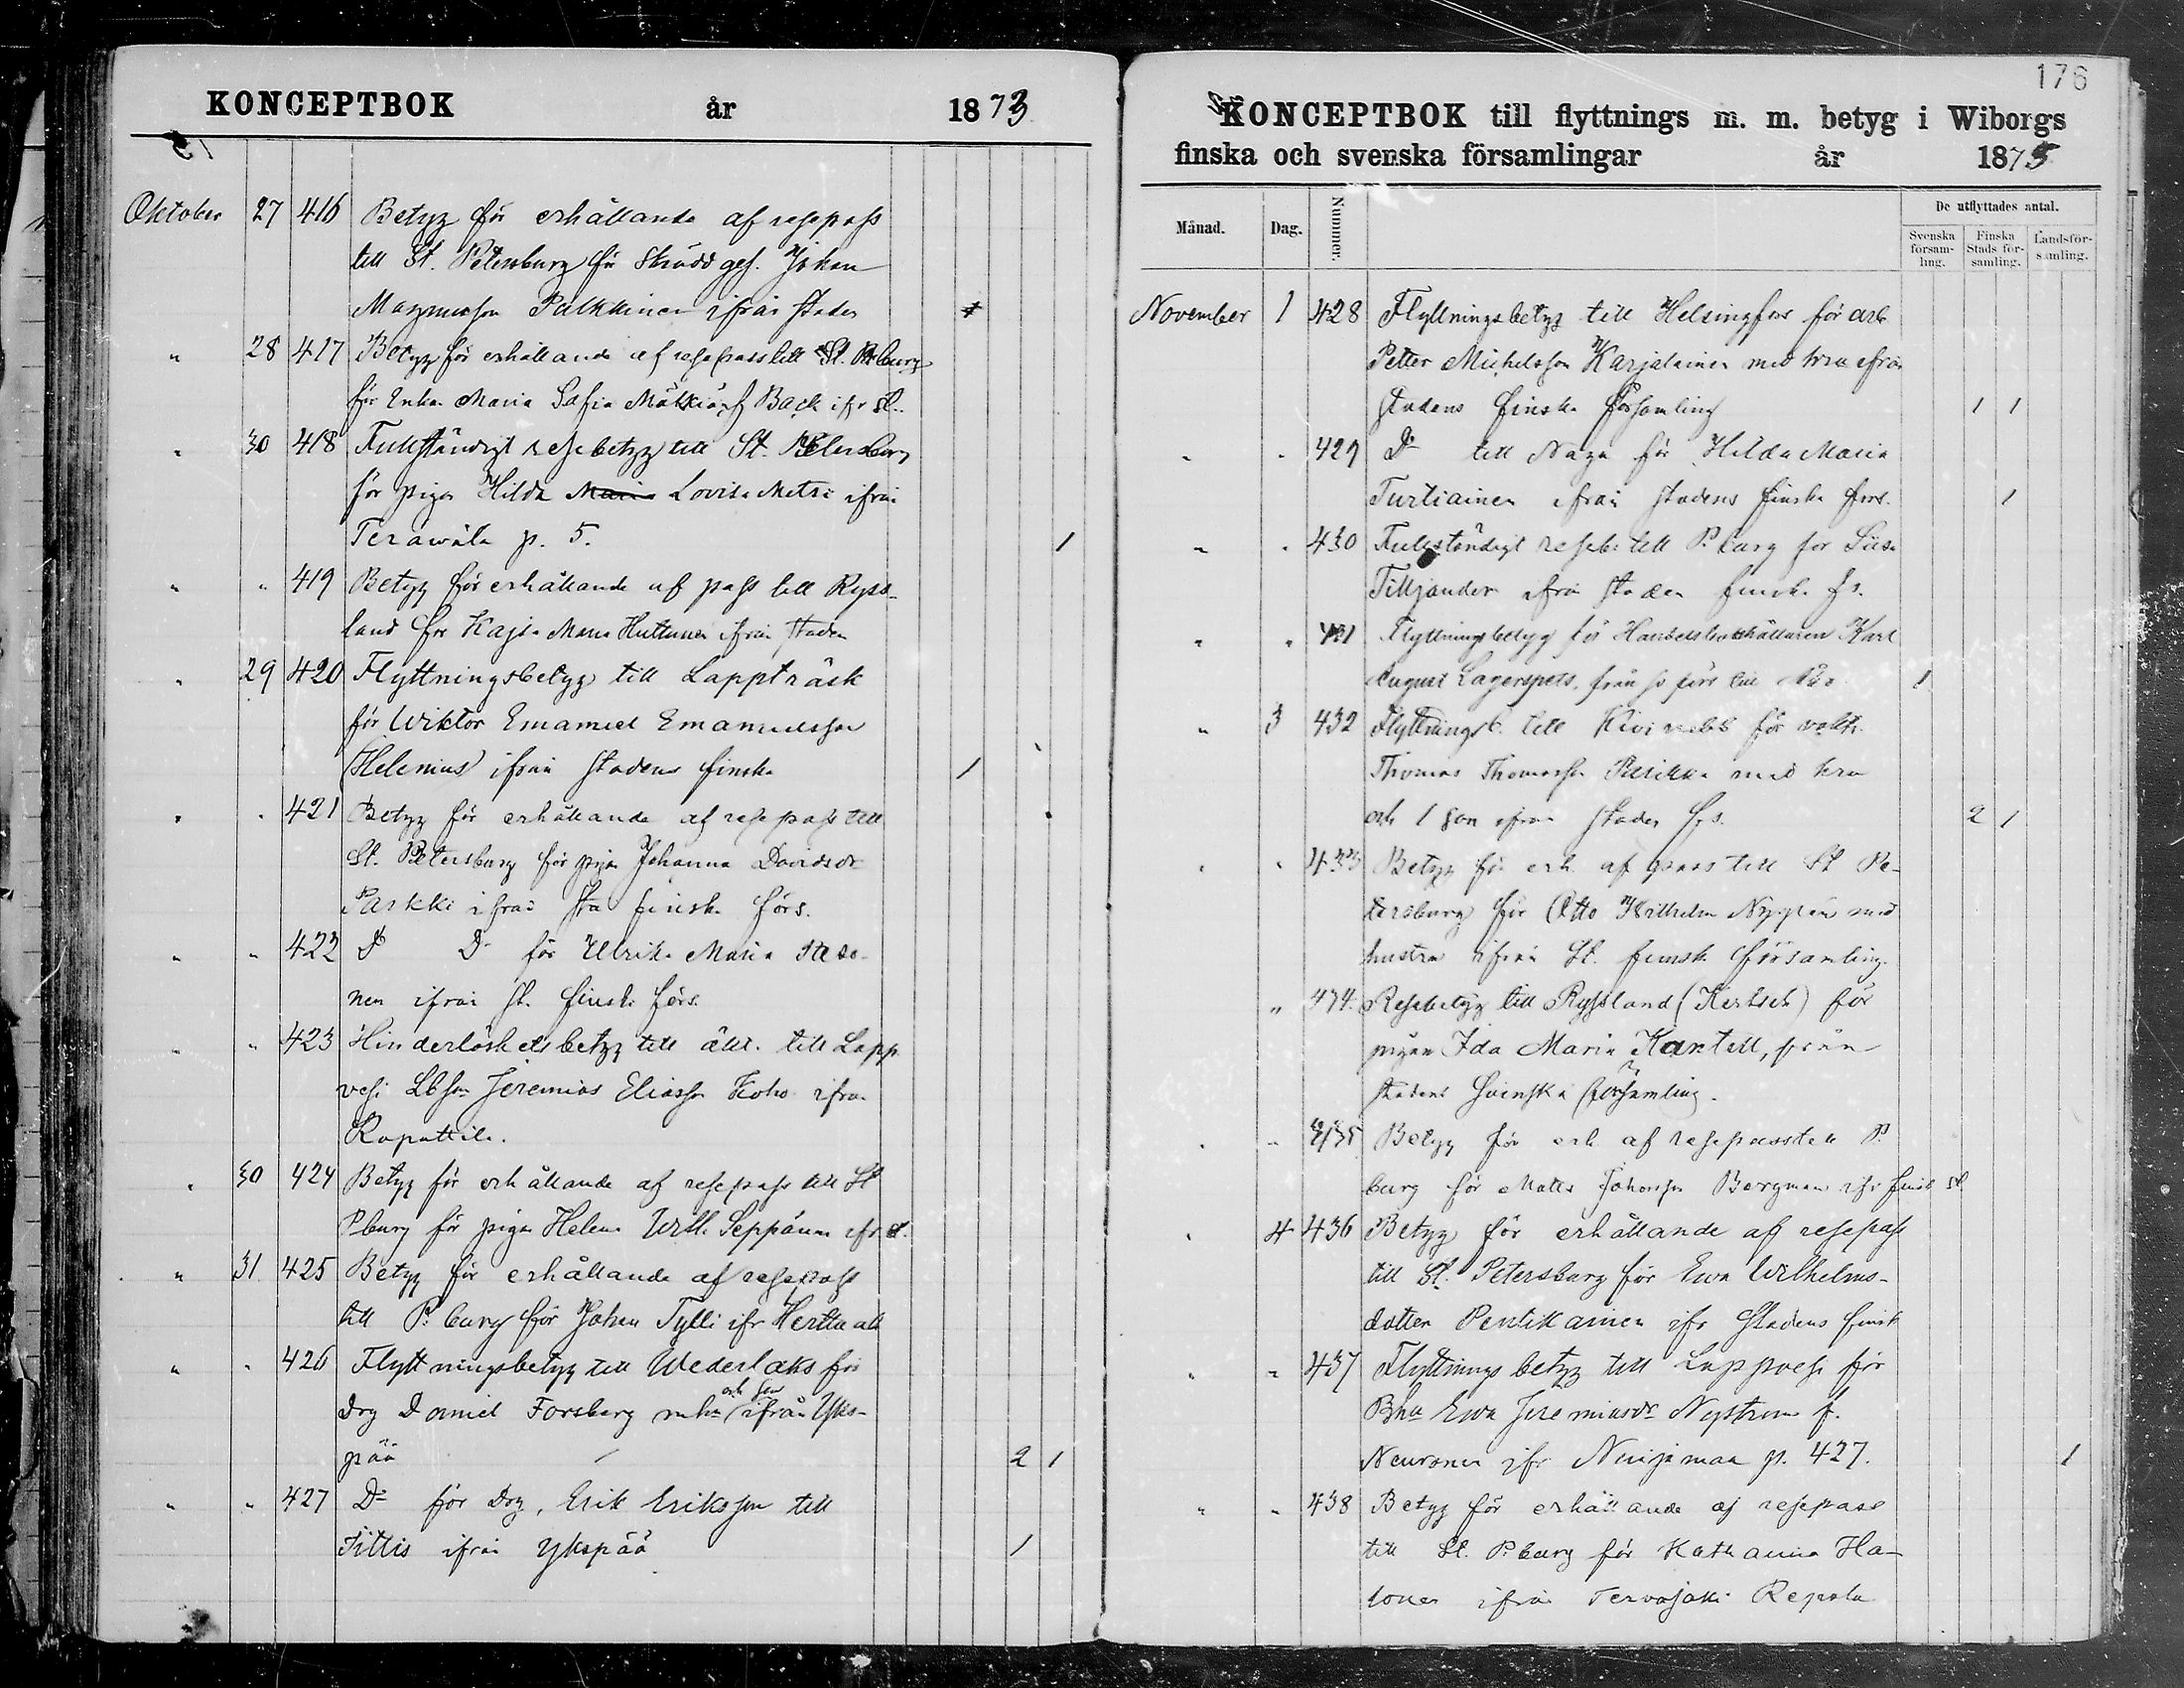 KONCEPTBOK år 1873
Oktober 27 416 Betyg för erhållande af resepass
till St. Petersburg för Skrädd ges. Johan
Magnusson Pulkkinen ifrån staden
" 28 417 Betyg för erhållande af resepass till St. P:burg
för Enkan Maria Sofia f Back ifr st.
" 30 418 Fullständigt resebetyg till St. Petersburg
för pigan Hilda Maria Lovisa Metso ifrån
Terawälä p. 5. 1
" " 419 Betyg för erhållande af pass till Ryss-
land för Kajsa Maria Huttunen ifrån staden
" 29 420 Flyttningsbetyg till Lappträsk
för Wiktor Emanuel Emanuelsson
Helenius ifrån stadens finska 1
" " 421 Betyg för erhållande af resepass till
St. Petersburg för pigan Johanna Davidsdr
Parkki ifrån sta finska förs.
" " 422 Do Do för Ulrika Maria
nen ifrån st. finska förs.
" " 423 Hinderlöshetsbetyg till äkt. till Lapp
vesi Lbson Jeremias Eliasson Koho ifrån
Rapattila.
" 30 424 Betyg för erhållande af resepass till St
P:burg för pigan Helena Wilh. Seppänen ifr st.
" 31 425 Betyg för erhållande af resepass
till P:burg för Johan Tylli ifr Herttuala
" " 426 Flyttningsbetyg till Wederlaks för
och son
Drg Daniel Forsberg m hu ifrån Yks-
pää 2 1
" " 427 Do för Drg. Erik Eriksson till
Tittis ifrån Ykspää 1
176
KONCEPTBOK till flyttnings m. m. betyg i Wiborgs
finska och svenska församlingar år 1875
Månad. Dag. Nummer. De utflyttades antal.
Svenska församling. Finska Stads församling. Landsförsamling.
November 1 428 Flyttningsbetyg till Helsingfors för arb
Petter Michelsson Karjalainen med hru ifrån
stadens finska församling 1 1
" " 429 Do till för Hilda Maria
Turtiainen ifrån stadens finska förs. 1
" " 430 Fullständigt reseb: till P:burg för Liisa
Tilljander ifrån staden finska fs.
" " 431 Flyttningsbetyg för Handelsbokhållaren Karl
August Lagerspets, från sv förs till Åbo 1
" 3 432 Flyttningsb. till Kivinebb för
Thomas Thomasson Pasikka med hru
och 1 son ifrån staden fs. 2 1
" " 433 Betyg för erh. af pass till St Pe-
tersburg för Otto Wilhelm med
hustru ifrån St. finska församling.
" 474. Resebetyg till Ryssland (Kertsch) för
pigan Ida Maria Kantell, från
stadens svenska församling.
" " 435 Betyg för erh af resepass till P.
burg för Matts Johansson Bergman ifr finsk st
" 4 436 Betyg för erhållande af resepass
till St. Petersburg för Ewa Wilhelms-
dotter Pentikainen ifr Stadens finsk
" " 437 Flyttnings betyg till Lappvesi för
Ewa Jeremiasdr Nyström f.
Neuvonen ifr Nuijamaa p. 427. 1
" " 438 Betyg för erhållande af resepass
till St. P:burg för Katharina Ha-
lonen ifrån Tervajoki Repola